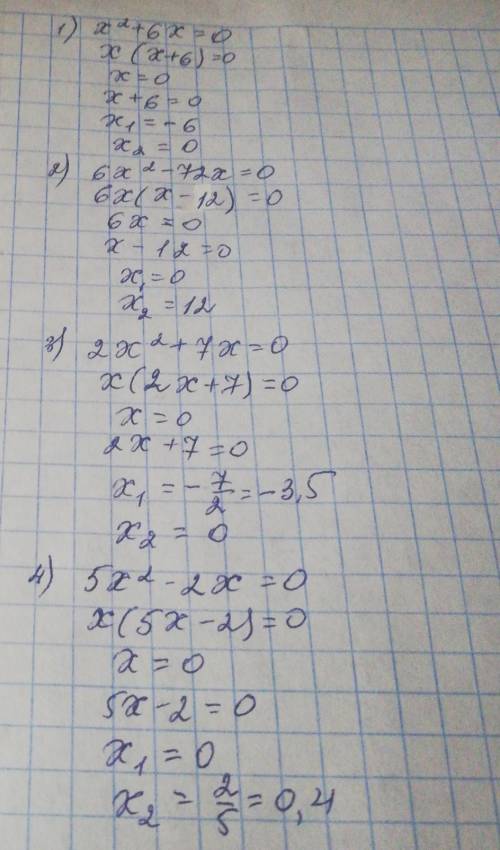 1) x² + 6x = 0
x (x+6) = 0
x = 0
x + 6 = 0
x₁ = -6
x₂ = 0
2) 6x² - 72x = 0
6x(x - 12) = 0
6x = 0
x - 12 = 0
x₁ = 0
x₂ = 12
3) 2x² + 7x = 0
x(2x+7) = 0
x = 0
2x + 7 = 0
x₁ = -7/2 = -3,5
x₂ = 0
4) 5x² - 2x = 0
x(5x - 2) = 0
x = 0
5x - 2 = 0
x₁ = 0
x₂ = 2/5 = 0,4